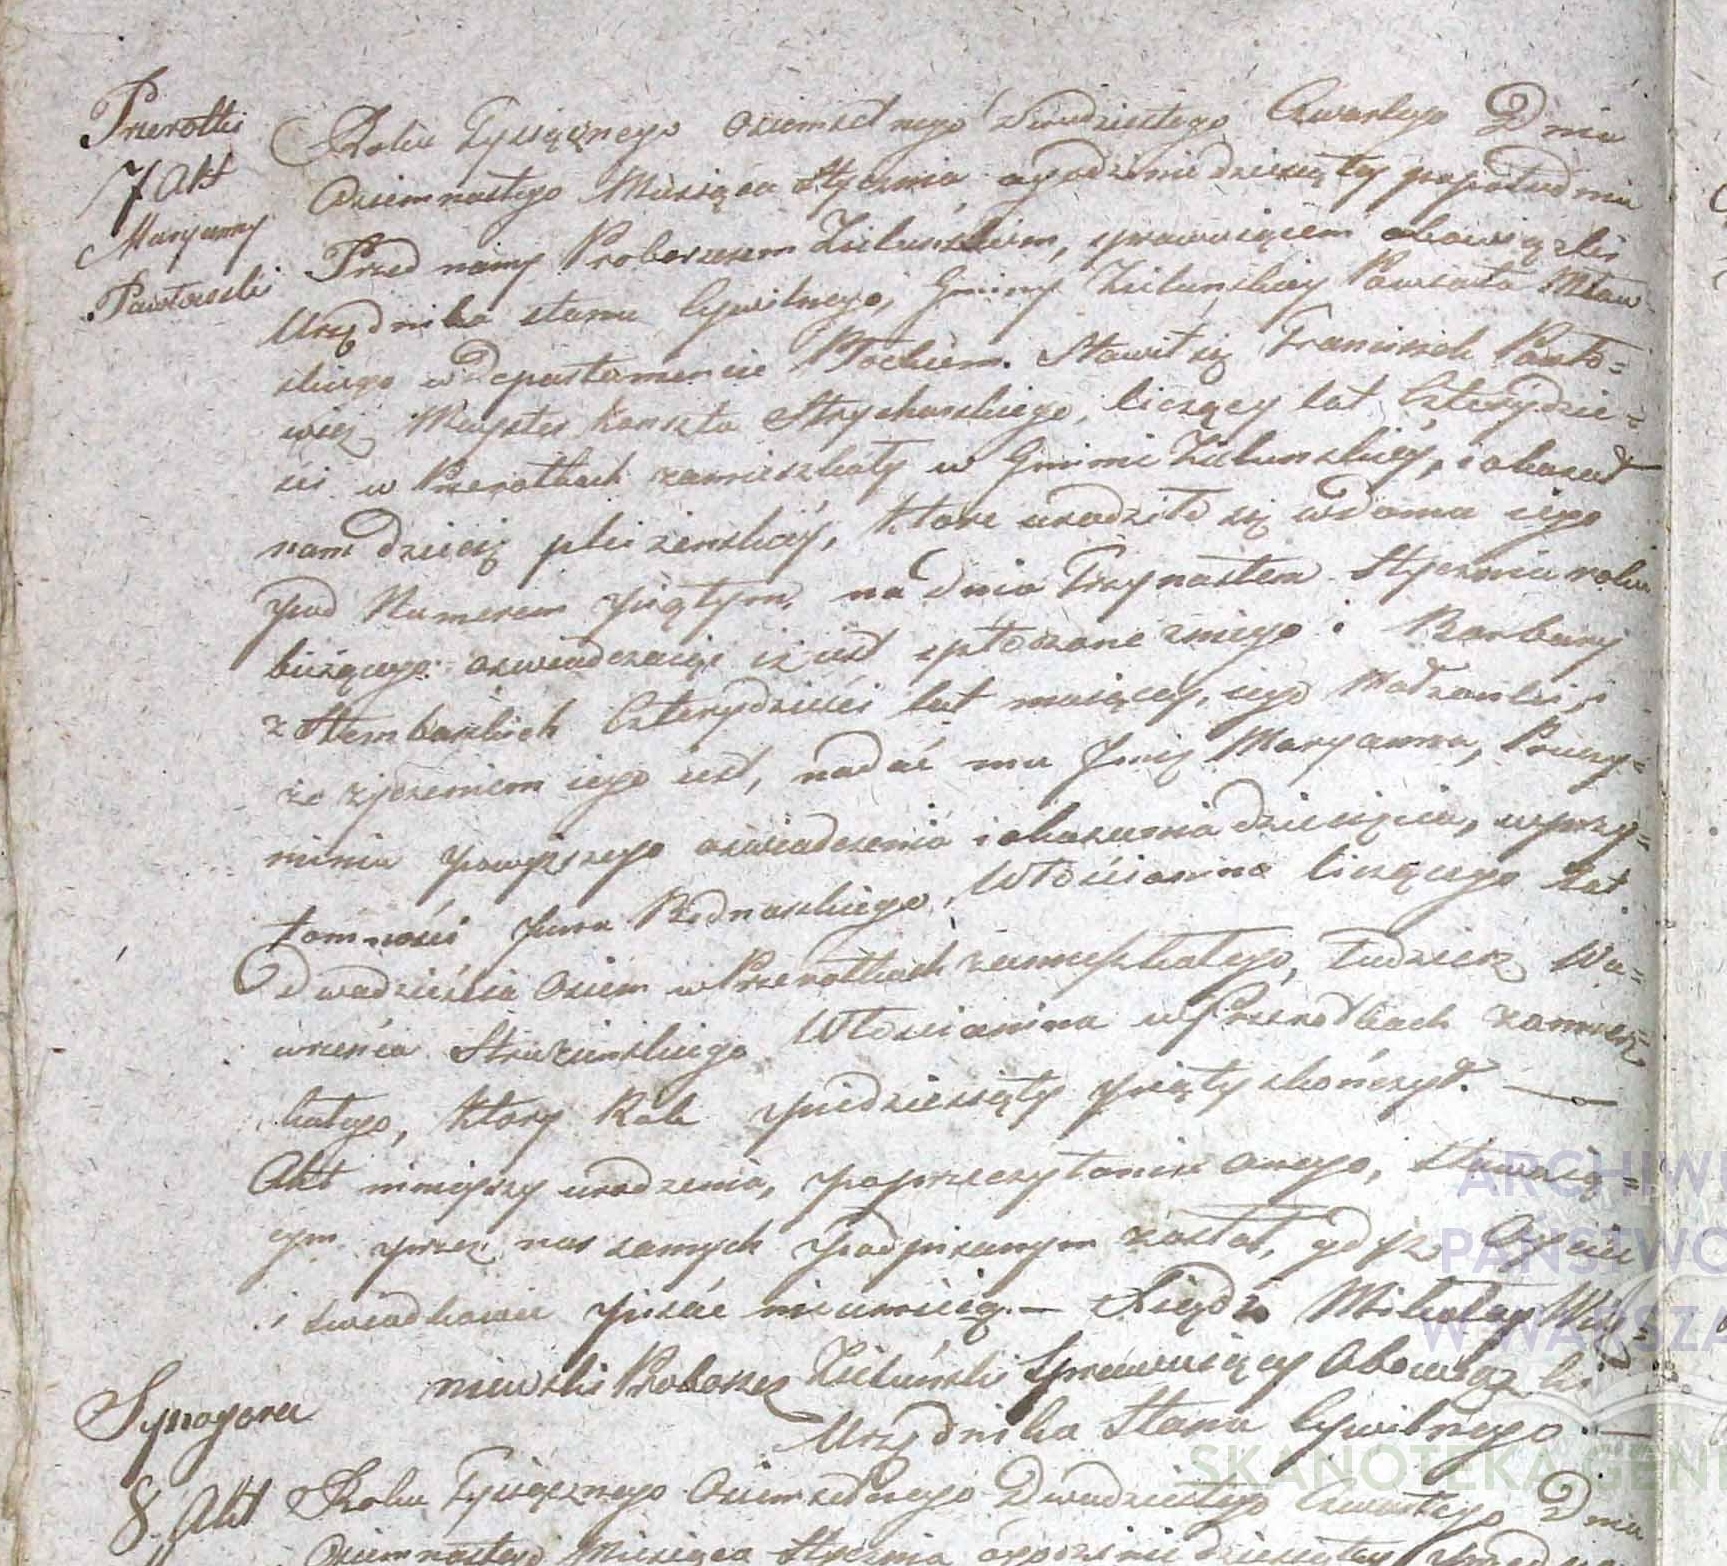 Przerotki
7 Akt
Maryanny
Pawłoski
Roku Tysiącznego osiemsetnego dwudziestego Czwartego Dnia
Osiemnastego Miesiąca Stycznia ogodzinie dziesiąty popołudniu
Przed nami Proboszczem Zieluńskim, sprawuiącem obowiązki
Urzędnika stanu Cywilnego, Gminy Zieluńskiey Powiatu Mław
skiego w Departamencie Płockiem. Stawił się Franciszek Pawło=
wicz Mayster Kunsztu Strycharskiego, liczący lat Czterydzie=
ści w Przerotkach zamieszkały w Gminie Zieluńskiey, i okazał
nam dziecię płci żenskiey, które urodziło się w domu iego
pod Numerem piątym, na dniu Trzynastem Stycznia roku
bieżącego: oswiadczaiąc iż iest spłodzone zniego i Barbary
z Stembarskich Czterydzieści lat maiącey, iego Małżonki, i
że życzeniem iego iest, nadać mu Jmię Maryanna, Pouczy=
nieniu powyższego oswiadczenia i okazania dziecięcia, w przy=
tomności Jana Bednarskiego, Włościanina liczącego lat
Dwadzieścia Osiem w Przerotkach zamieszkałego, tudzież Wa=
wrzeńca Włościanina w Przerodkach zamiesz=
kałego, który Rok piedziesiąty piąty skończył. —
Akt ninieyszy urodzenia, poprzeczytaniu onego, stawaią=
cym przez nas samych podpisanym został, gdyż Oyciec
i swiadkowie pisać nieumieią. — Xiądz Mikołay Wiś=
niewski Proboszcz Zieluński Sprawuiący Obowiązki
Urzędnika Stanu Cywilnego. —
Synogora
8. Akt Roku Tysiącznego Osiemsetnego Dwudziestego Czwartego Dnia
Osiemnastego Miesiąca Stycznia ogodzinie dziesiątey
ARCHIW
PAŃSTWO
W WARSZA
SKANOTEKA GENE